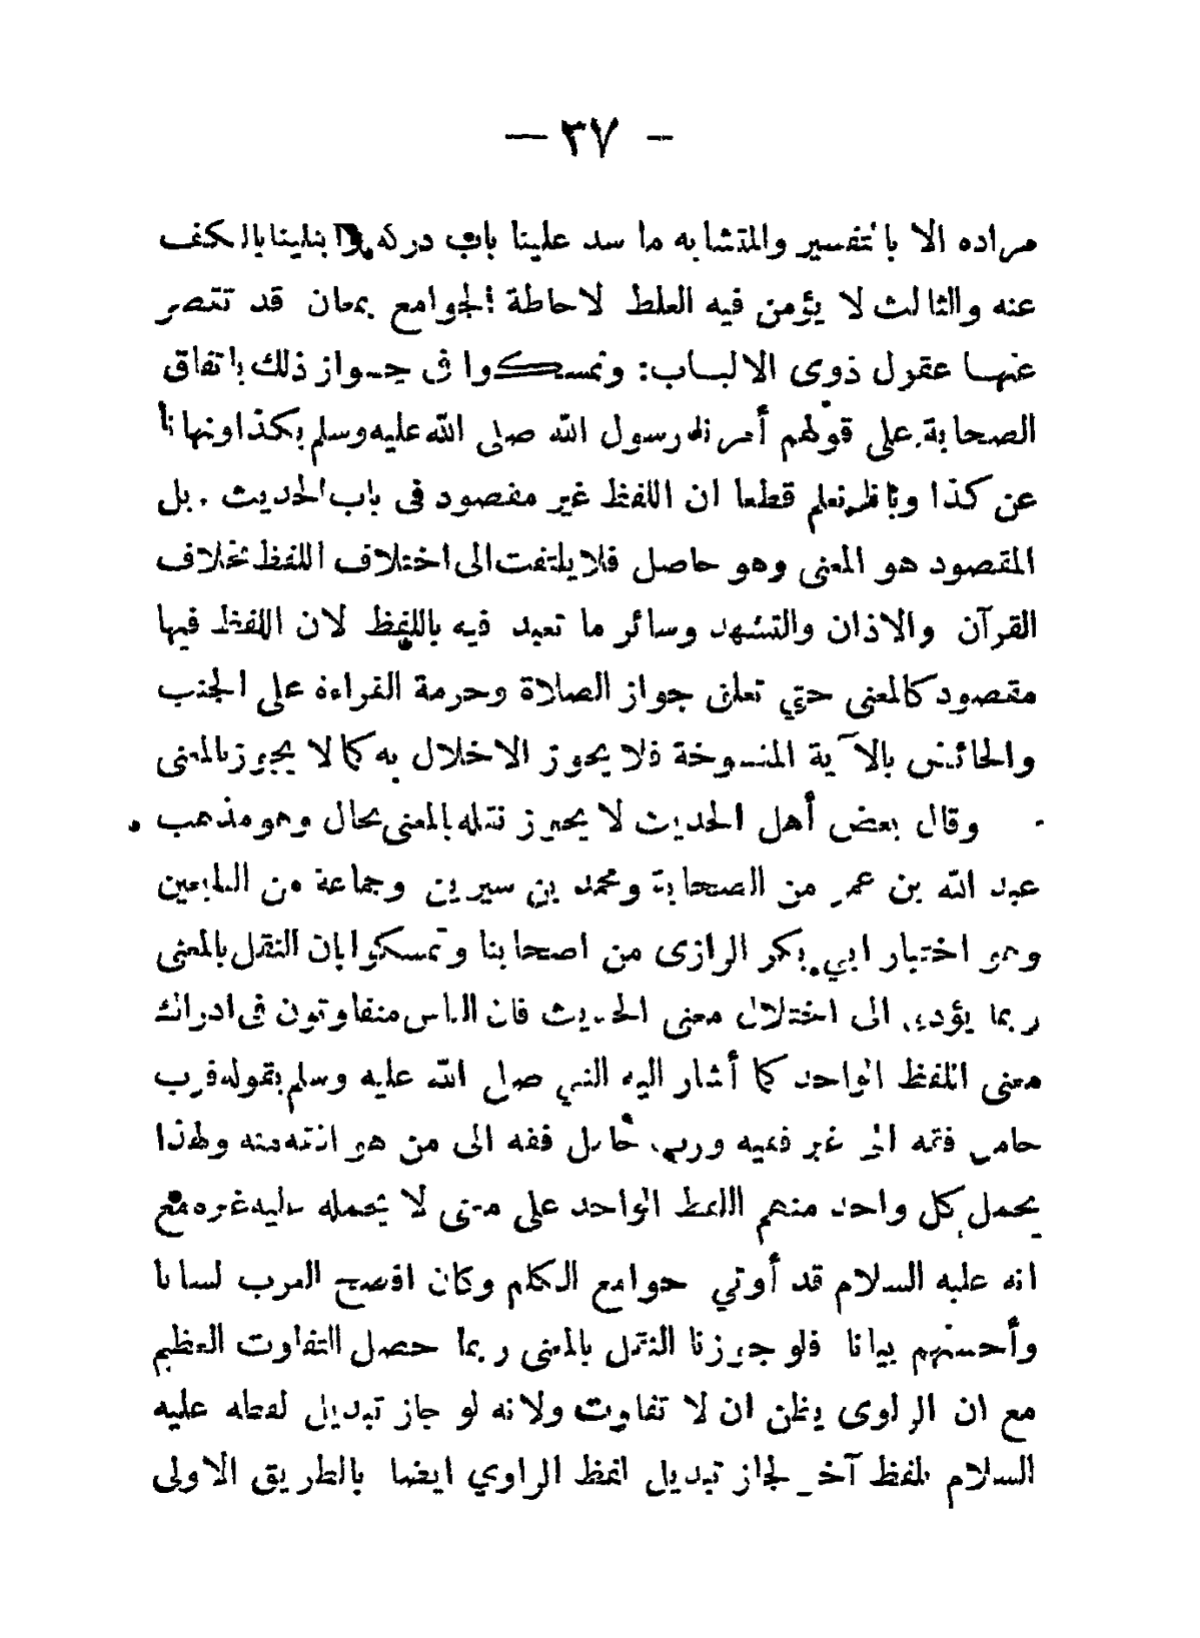 — ٣٧ —
مراده الا بالتفسير والمتشابه ما سد علينا باب دركه وابتلينا بالكف
عنه والثالث لا يؤمن فيه الغلط لاحاطة الجوامع بمعان قد تقصر
عنها عقول ذوى الالباب: وتمسكوا فى جواز ذلك باتفاق
الصحابة على قولهم أمرنا رسول الله صلى الله عليه وسلم بكذا ونهانا
عن كذا وبانا نعلم قطعا ان اللفظ غير مقصود فى باب الحديث بل
المقصود هو المعنى وهو حاصل فلا يلتفت الى اختلاف اللفظ بخلاف
القرآن والاذان والتشهد وسائر ما تعبد فيه باللفظ لان اللفظ فيها
مقصود كالمعنى حتي تعلق جواز الصلاة وحرمة القراءة على الجنب
والحائض بالآية المنسوخة فلا يجوز الاخلال به كما لا يجوز بالمعنى
وقال بعض أهل الحديث لا يجوز نقله بالمعنى بحال وهو مذهب
عبد الله بن عمر من الصحابة ومحمد بن سيرين وجماعة من التابعين
وهو اختيار ابي بكر الرازى من اصحابنا وتمسكوا بان النقل بالمعنى
ربما يؤدى الى اختلال معنى الحديث فان الناس متفاوتون فى ادراك
معنى اللفظ الواحد كما أشار اليه النبي صلى الله عليه وسلم بقوله فرب
حامل فقه الى غير فقيه ورب حامل فقه الى من هو افقه منه ولهذا
يحمل كل واحد منهم اللفظ الواحد على معنى لا يحمله عليه غيره مع
انه عليه السلام قد أوتي جوامع الكلم وكان افصح العرب لسانا
وأحسنهم بيانا فلو جوزنا النقل بالمعنى ربما حصل التفاوت العظيم
مع ان الراوى يظن ان لا تفاوت ولانه لو جاز تبديل لفظه عليه
السلام بلفظ آخر لجاز تبديل لفظ الراوي ايضا بالطريق الاولى